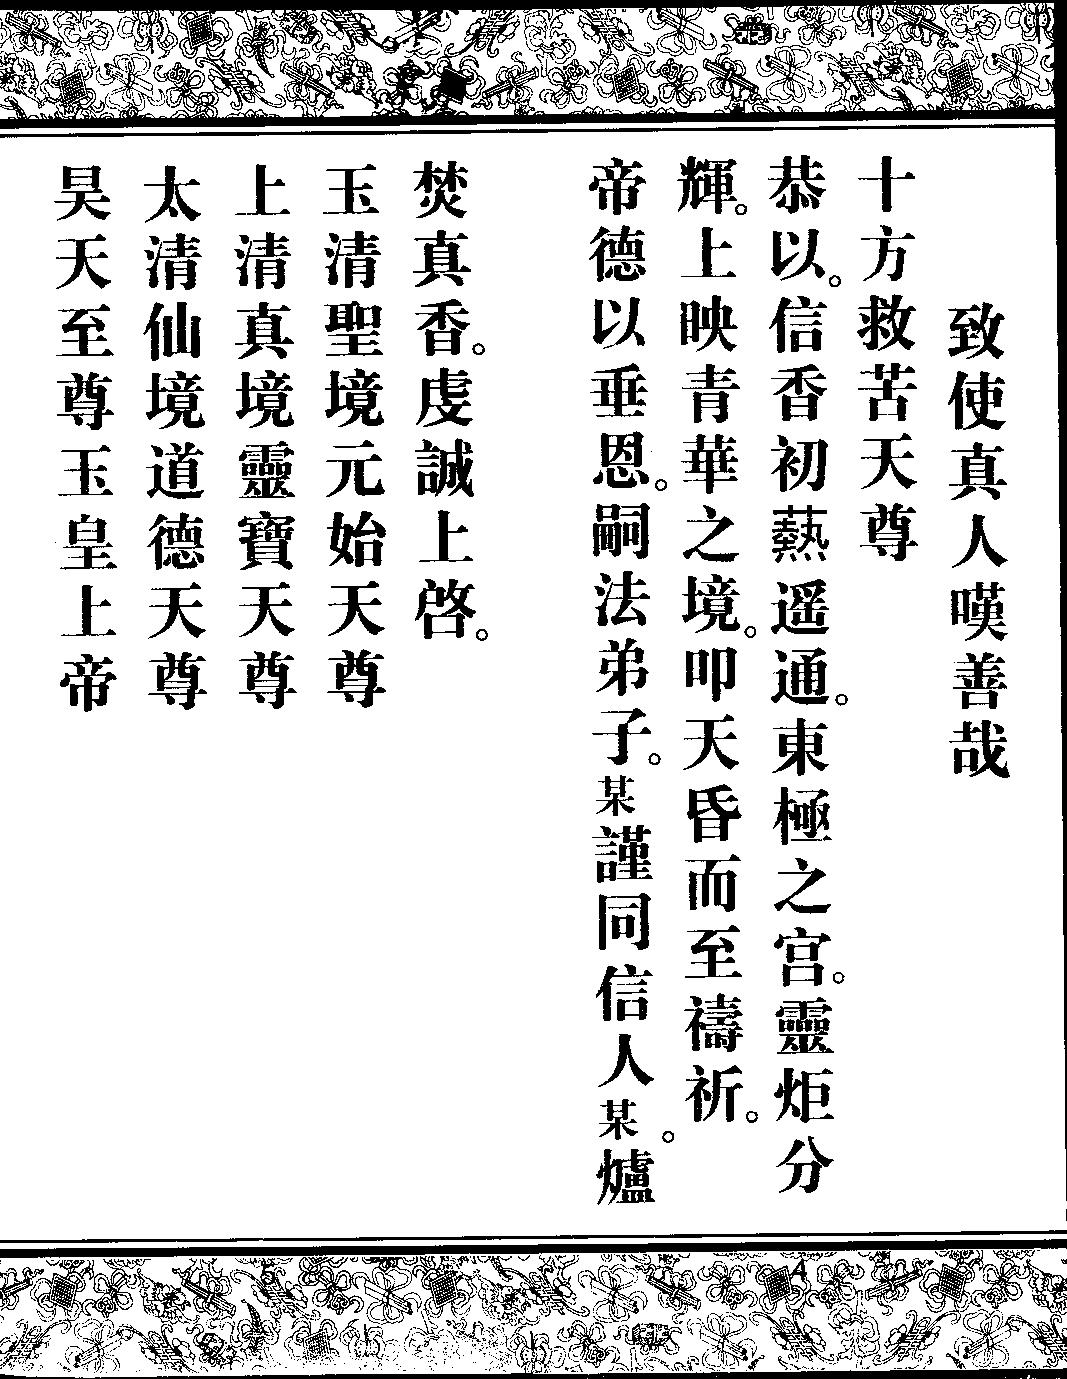 致使真人嘆善哉
十方救苦天尊
恭以。信香初爇遥通。東極之宮。靈炬分
輝。上映青華之境。叩天昏而至禱祈。
帝德以垂恩。嗣法弟子。某謹同信人某。爐
焚真香。虔誠上啓。
玉清聖境元始天尊
上清真境靈寶天尊
太清仙境道德天尊
昊天至尊玉皇上帝